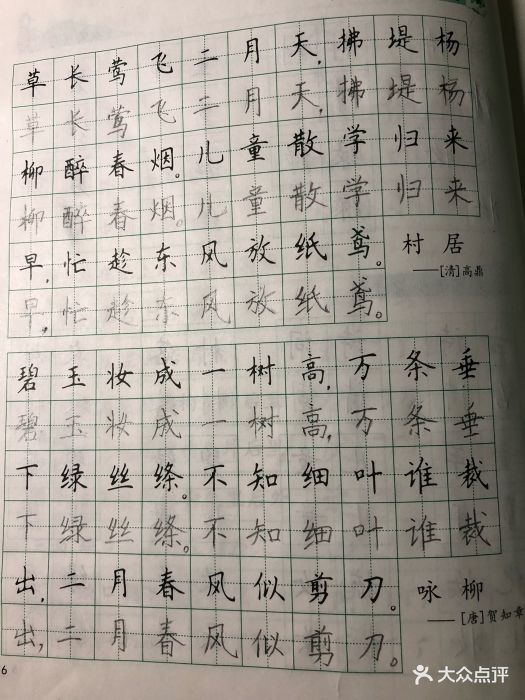 草长莺飞二月天,拂堤杨
草长莺飞二月天,拂堤杨
柳醉春烟。儿童散学归来
柳醉春烟。儿童散学归来
早,忙趁东风放纸鸢。
早,忙趁东风放纸鸢。
村居
——[清]高鼎
碧玉妆成一树高,万条垂
碧玉妆成一树高,万条垂
下绿丝绦。不知细叶谁裁
下绿丝绦。不知细叶谁裁
出,二月春风似剪刀。
出,二月春风似剪刀。
咏柳
——[唐]贺知章
6
大众点评